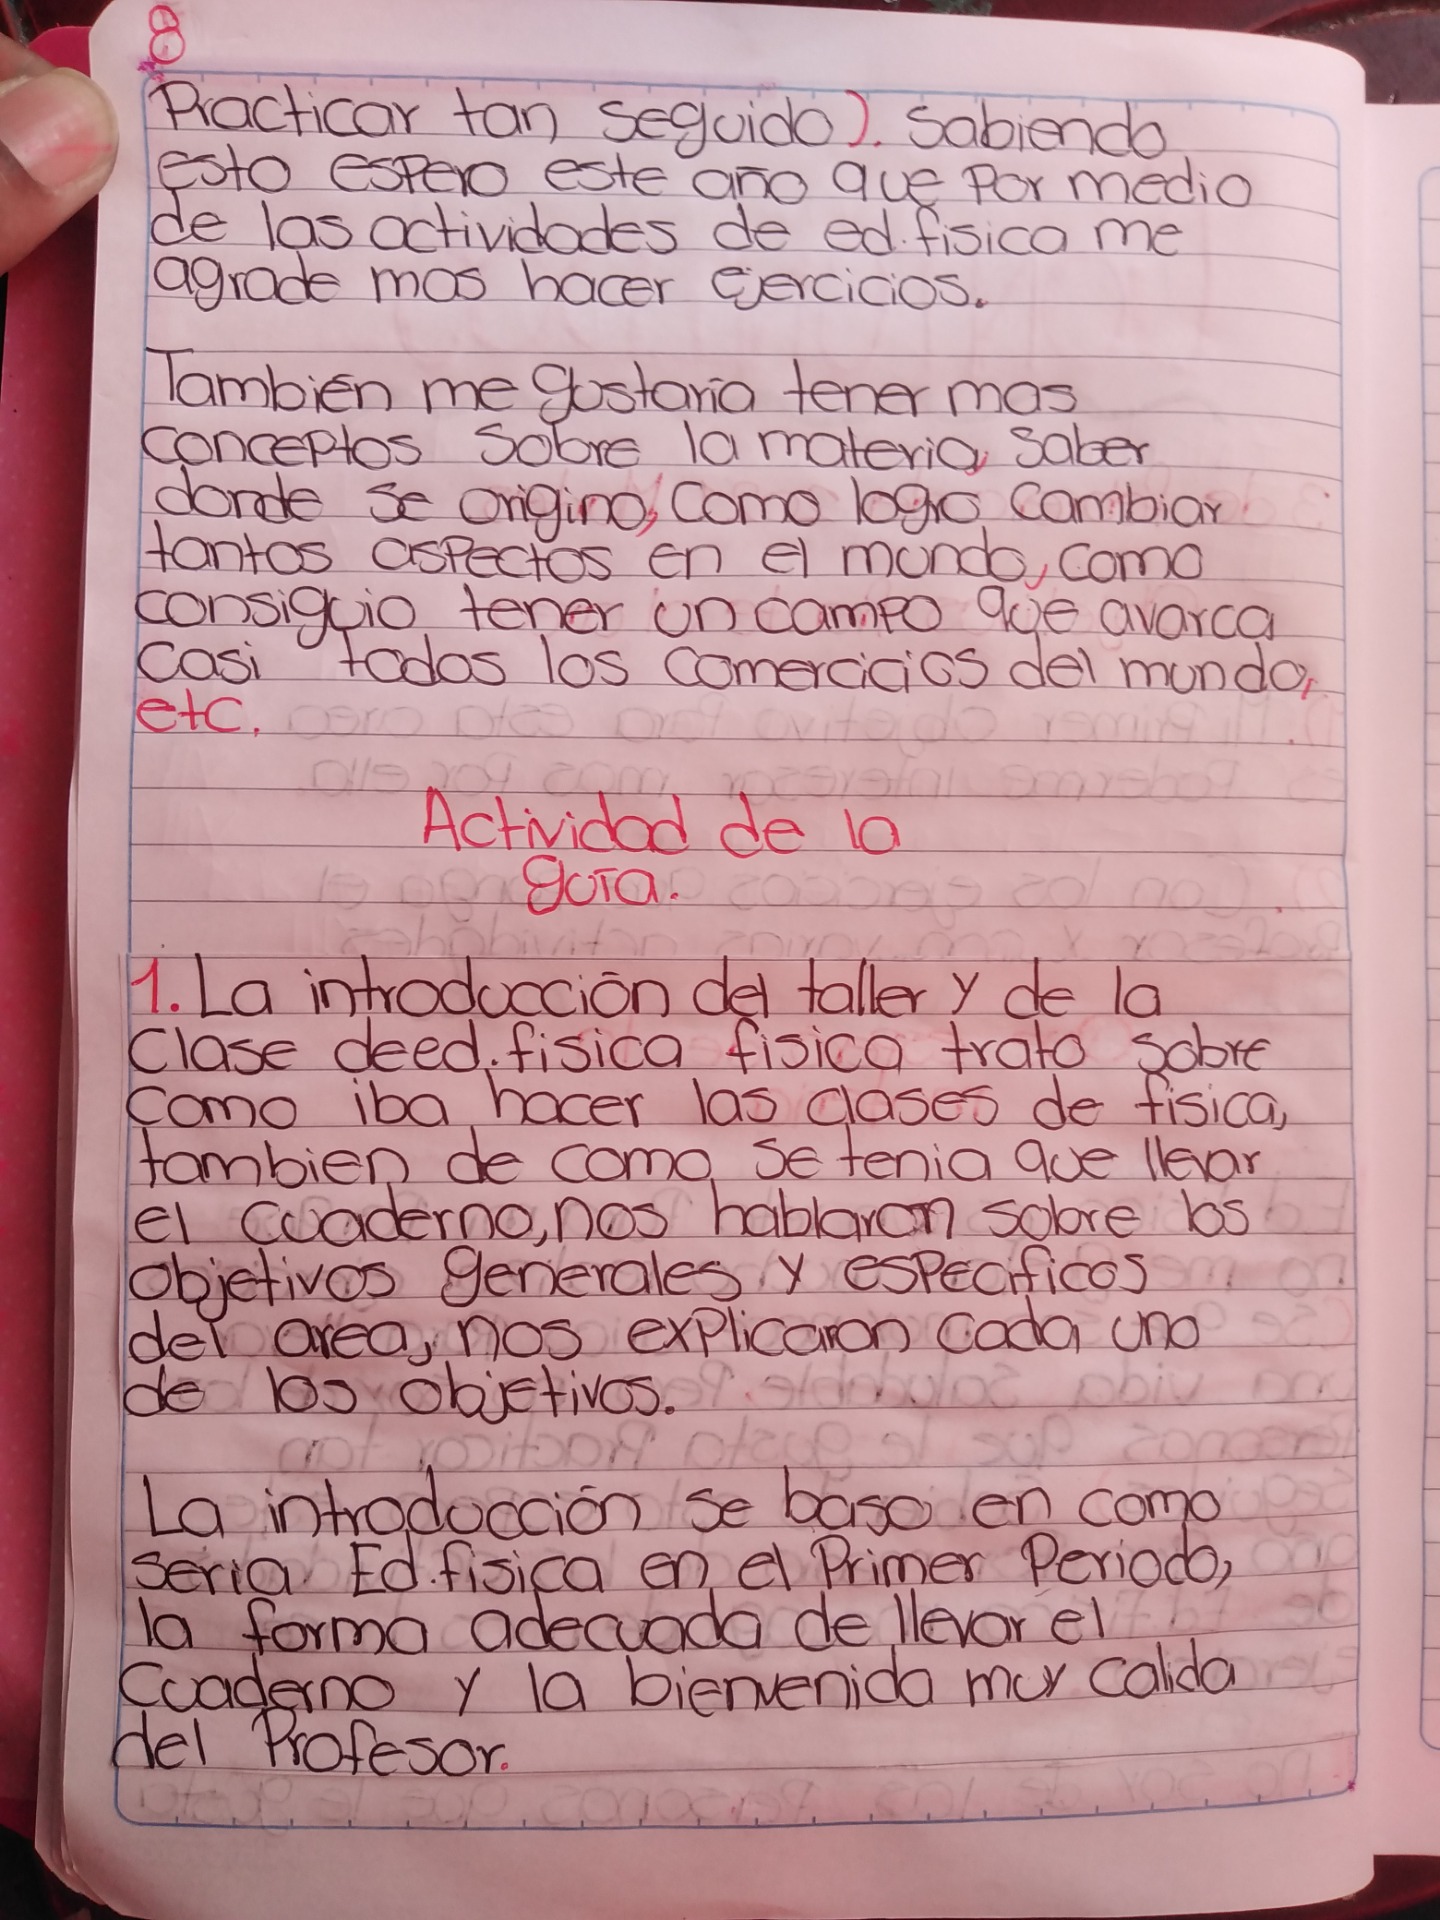 8
Practicar tan seguido). Sabiendo
esto espero este año que por medio
de las actividades de ed.fisica me
agrade mas hacer ejercicios.
También me gustaría tener mas
conceptos sobre la materia, saber
donde se origino, como logro cambiar
tantos aspectos en el mundo, como
consiguio tener un campo que avarca
casi todos los comercicios del mundo,
etc.
Actividad de la
guía.
1. La introducción del taller y de la
Clase deed.fisica fisica trato sobre
como iba hacer las clases de fisica,
tambien de como se tenia que llevar
el cuaderno, nos hablaron sobre los
objetivos generales y especificos
del area, nos explicaron cada uno
de los objetivos.
La introducción se baso en como
seria Ed.fisica en el Primer Periodo,
la forma adecuada de llevar el
Cuaderno y la bienvenida muy calida
del Profesor.